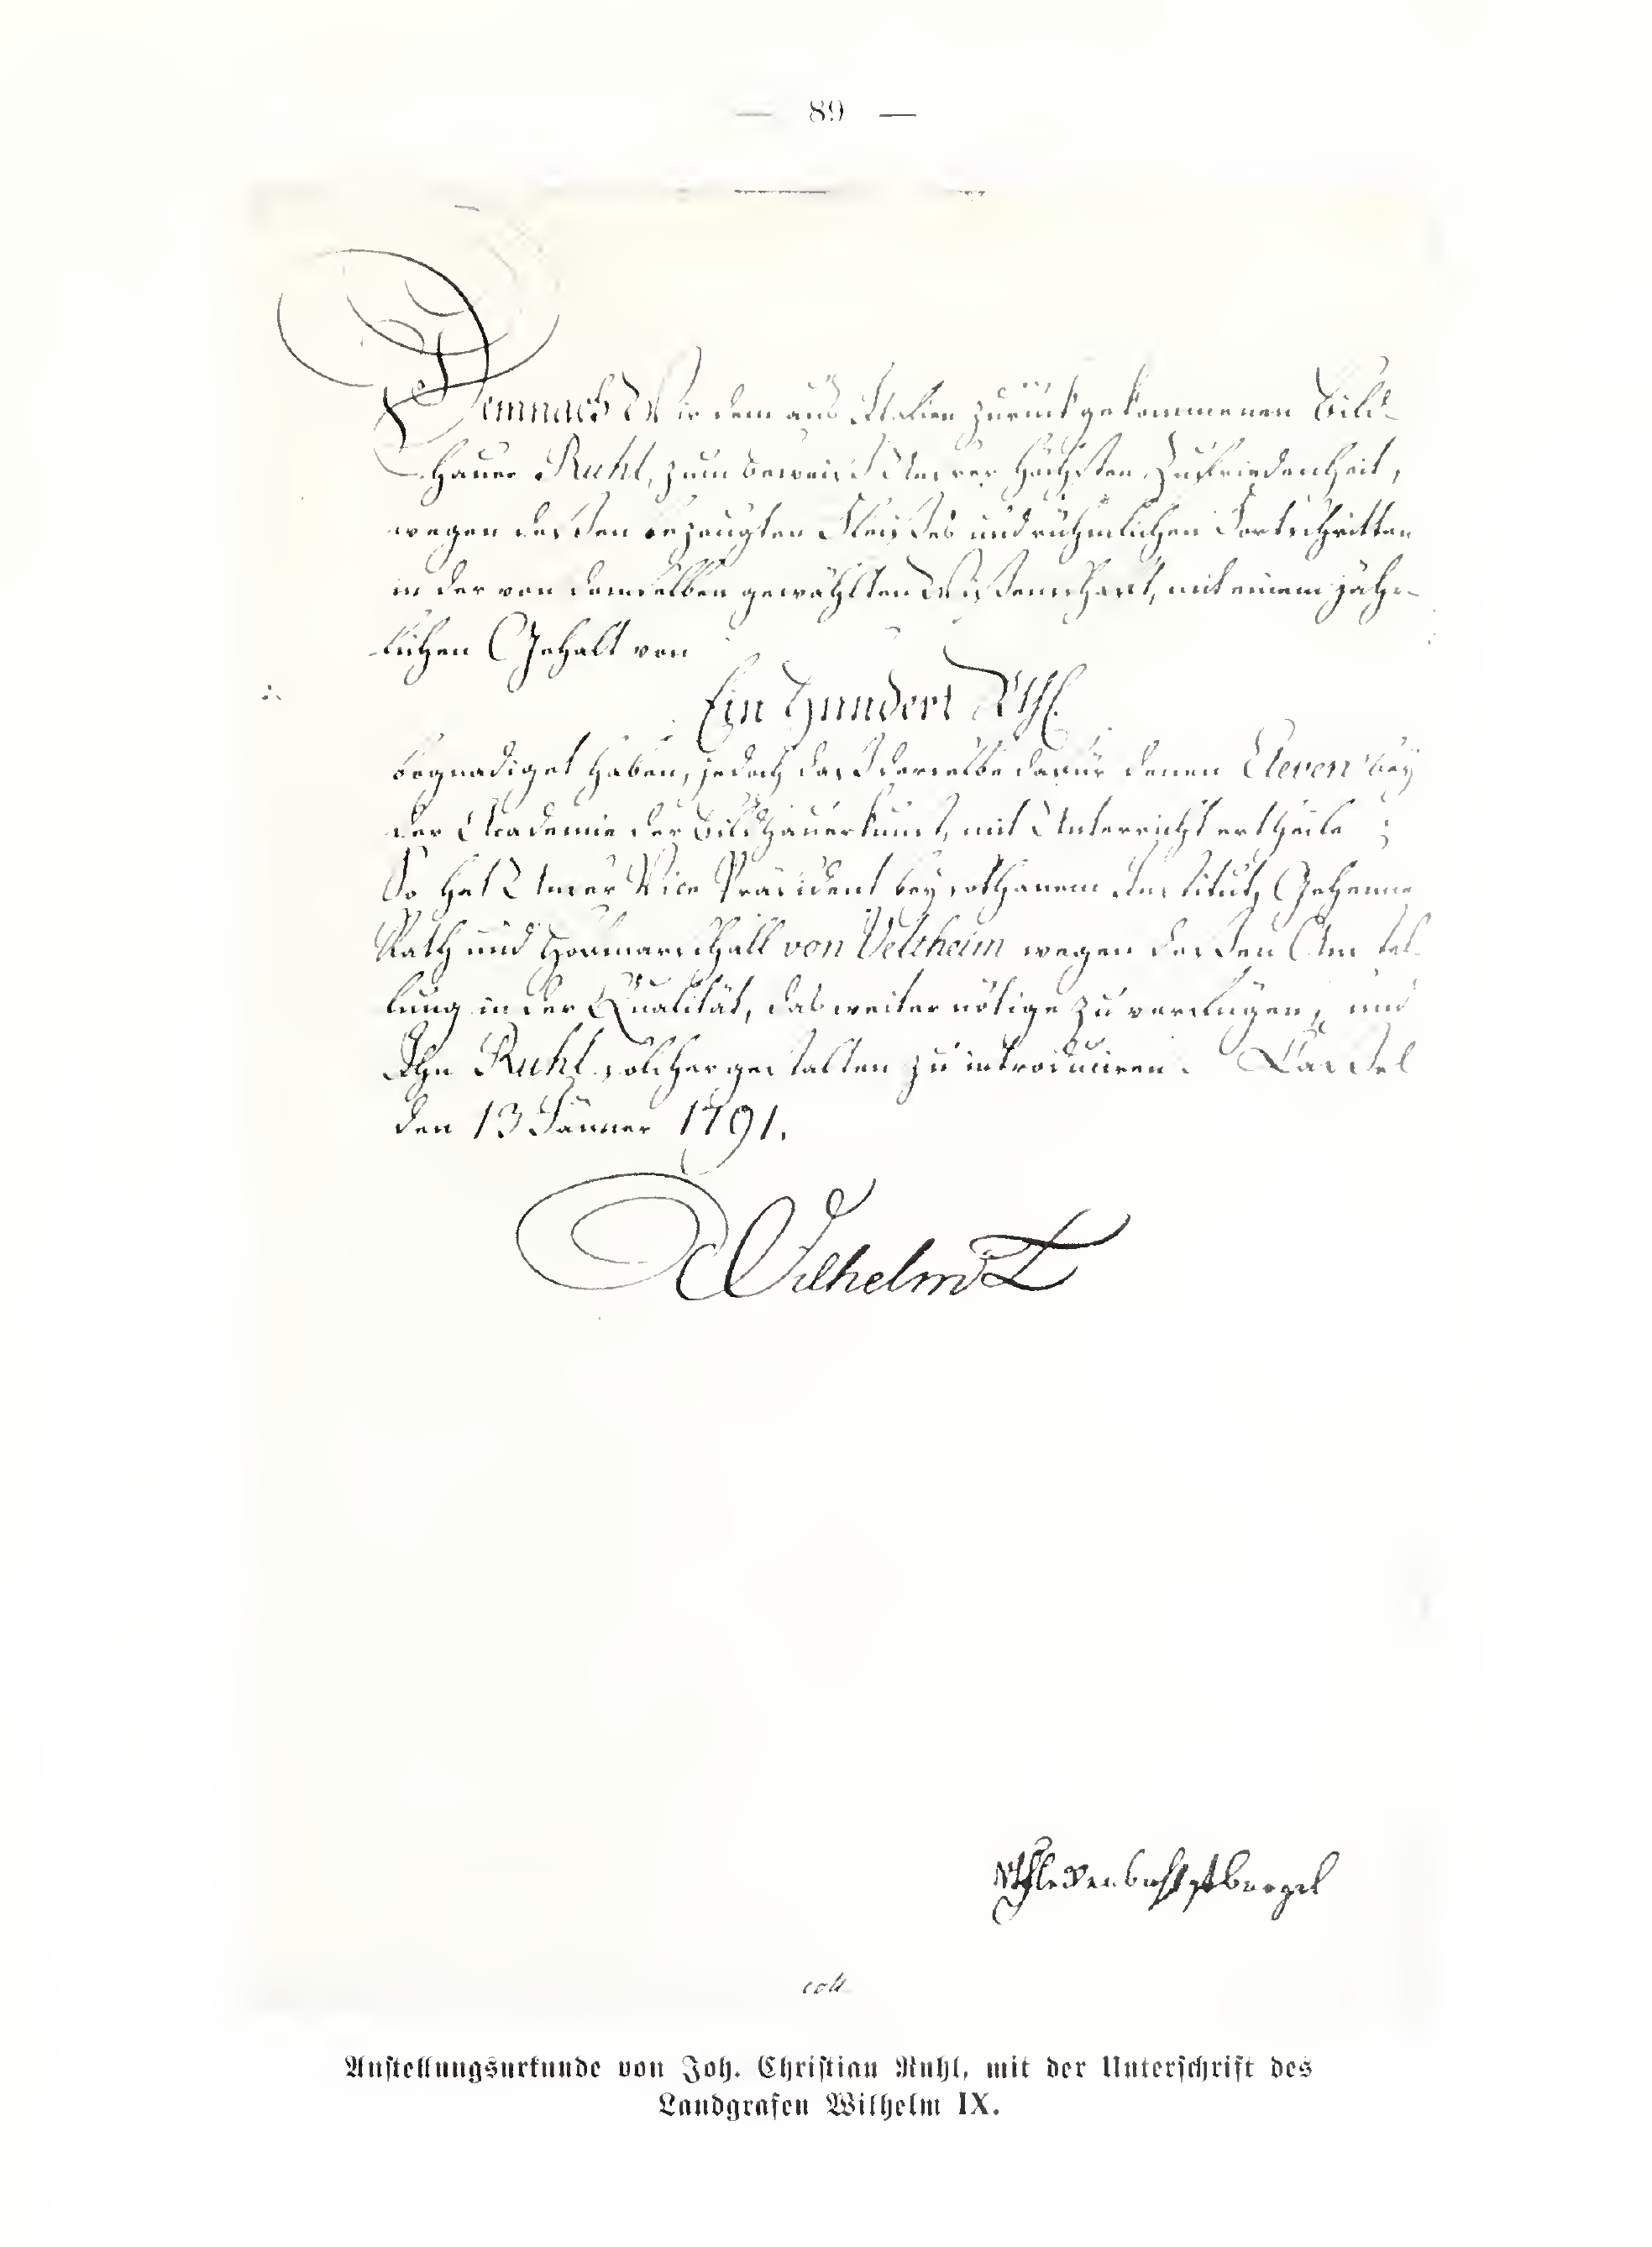 — 89 —
Demnach Wir dem aus Italien zurück gekommenen Bild-
hauer Ruhl, zum Beweiß Unserer höchsten Zufriedenheit,
wegen deßen bezeugten Fleißes und rühmlichen Fortschritten
in der von demselben gewählten Wißenschaft, mit einem jähr-
lichen Gehalt von
Ein Hundert Rthl.
begnadiget haben, jedoch daß derselbe dafür denen Eleven bey
der Academie der Bildhauerkunst, mit Unterricht ertheile;
So hat Unser Vice Präsident bey sothanem Institut, Geheime
Rath und Hofmarschall von Veltheim wegen deßen Anstel-
lung in der Qualität, das weiter nötige zu verfügen, und
Ihn Ruhl solchergestalten zu introduciren. Caßel
den 13 Jänner 1791.
Wilhelm L
Anstellungsurkunde von Joh. Christian Ruhl, mit der Unterschrift des
Landgrafen Wilhelm IX.